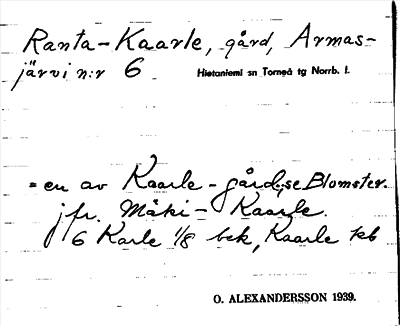 Ranta-Kaarle, gård, Armas-
järvi n:r 6 Hietaniemi sn Torneå tg Norrb. l.
= en av Kaarle-gård,se Blomster.
jfr. Mäki-Kaarle.
6 Karle 1/8 bek, Kaarle kb
O. ALEXANDERSSON 1939.